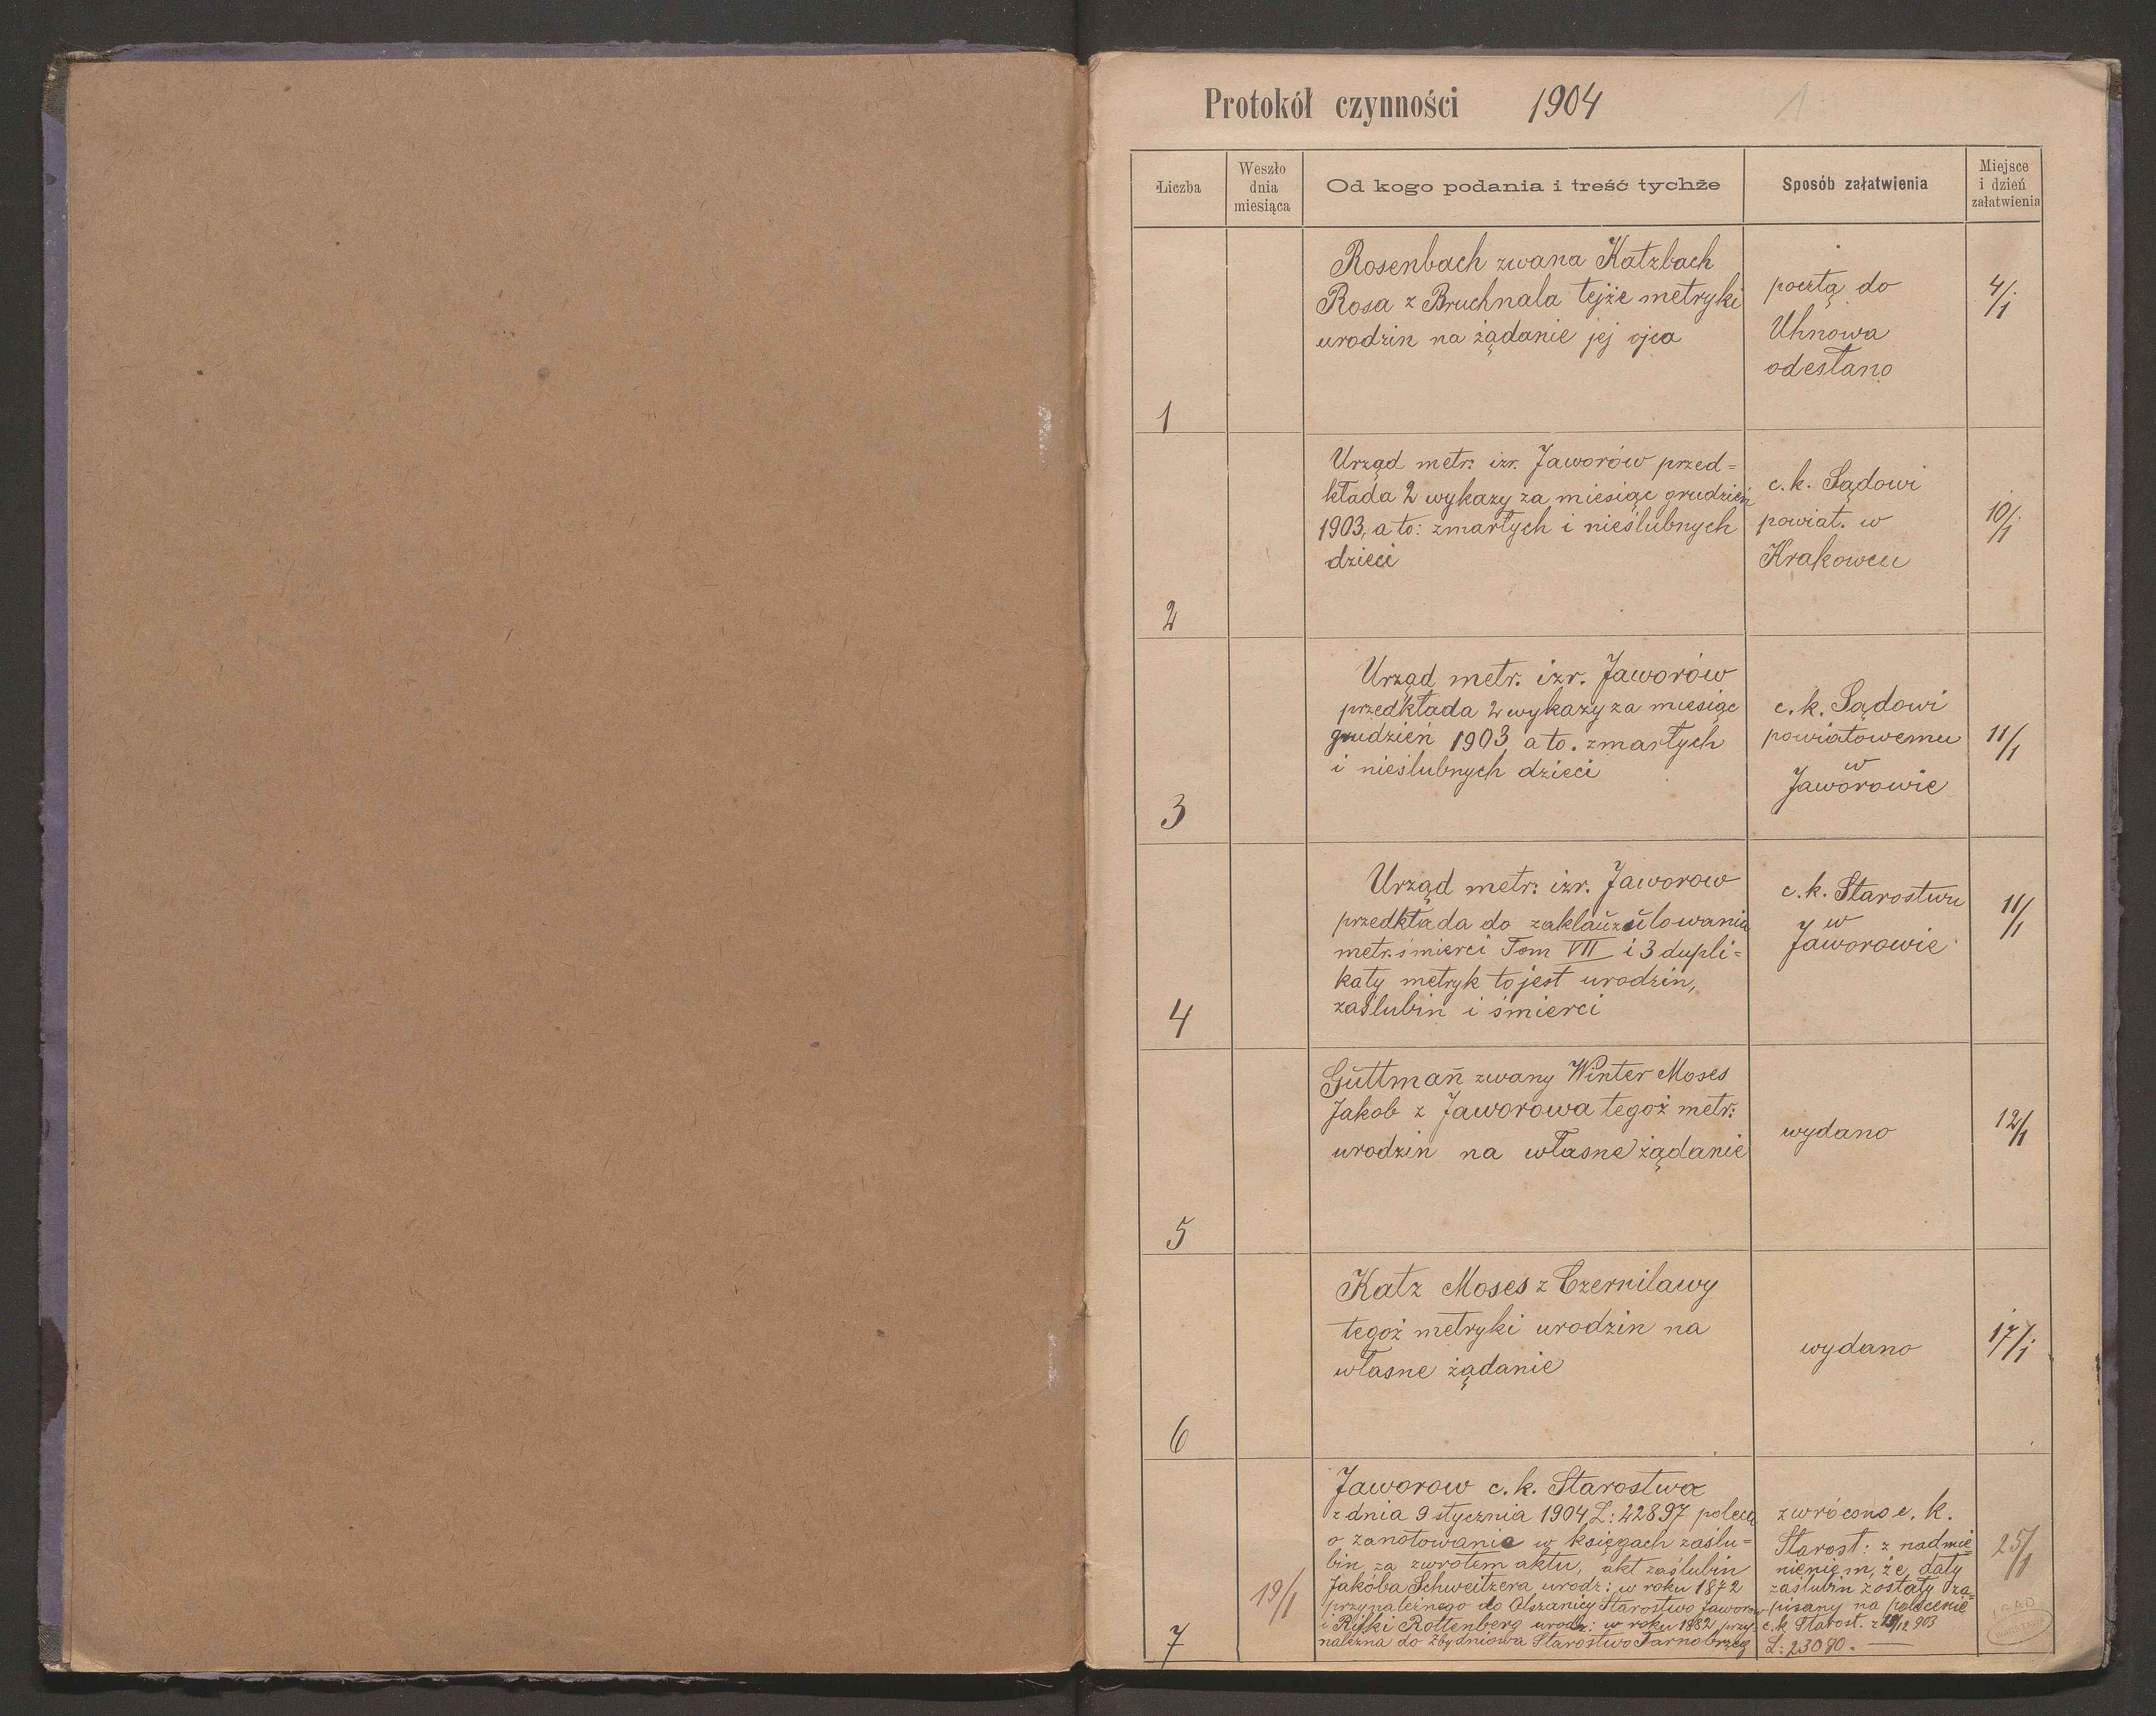 Protokół czynności 1904
1
Liczba
Weszło
dnia
miesiąca
Od kogo podania i treść tychże
Sposób załatwienia
Miejsce
i dzień
załatwienia
1
Rosenbach zwana Katzbach
Rosa z Bruchnala tejże metryki
urodzin na żądanie jej ojca
pocztą do
Uhnowa
odesłano
4/1
2
Urząd metr: izr. Jaworów przed=
kłada 2 wykazy za miesiąc grudzień
1903, a to: zmarłych i nieślubnych
dzieci
c. k. Sądowi
powiat. w
Krakowcu
10/1
3
Urząd metr. izr. Jaworów
przedkłada 2 wykazy za miesiąc
grudzień 1903, a to. zmarłych
i nieślubnych dzieci
c. k. Sądowi
powiatowemu
w
Jaworowie
11/1
4
Urząd metr: izr. Jaworow
przedkłada do zaklauzulowania
metr. śmierci Tom VII i 3 dupli=
katy metryk to jest urodzin,
zaślubin i śmierci
c. k. Starostwu
w
Jaworowie
11/1
5
Guttmann zwany Winter Moses
Jakob z Jaworowa tegoż metr:
urodzin na własne żądanie
wydano
12/1
6
Katz Moses z Czernilawy
tegoż metryki urodzin na
własne żądanie
wydano
17/1
7
19/1
Jaworow c. k. Starostwa
z dnia 9 stycznia 1904 L: 22897 poleca
o zanotowanie w księgach zaślu=
bin za zwrotem aktu, akt zaślubin
Jakóba Schweitzera urodz: w roku 1872
przynależnego do Olszanicy Starostwo Jaworow
i Rifki Rottenberg urodz: w roku 1882 przy=
należna do Zbydniowa Starostwo Tarnobrzeg
zwrócono c. k.
Starost: z nadmie=
nieniem, że daty
zaślubin zostały za=
pisany na polecenie
c. k. Starost. z /12 903
L: 23080. —
25/1
AGAD
WARSZAWA